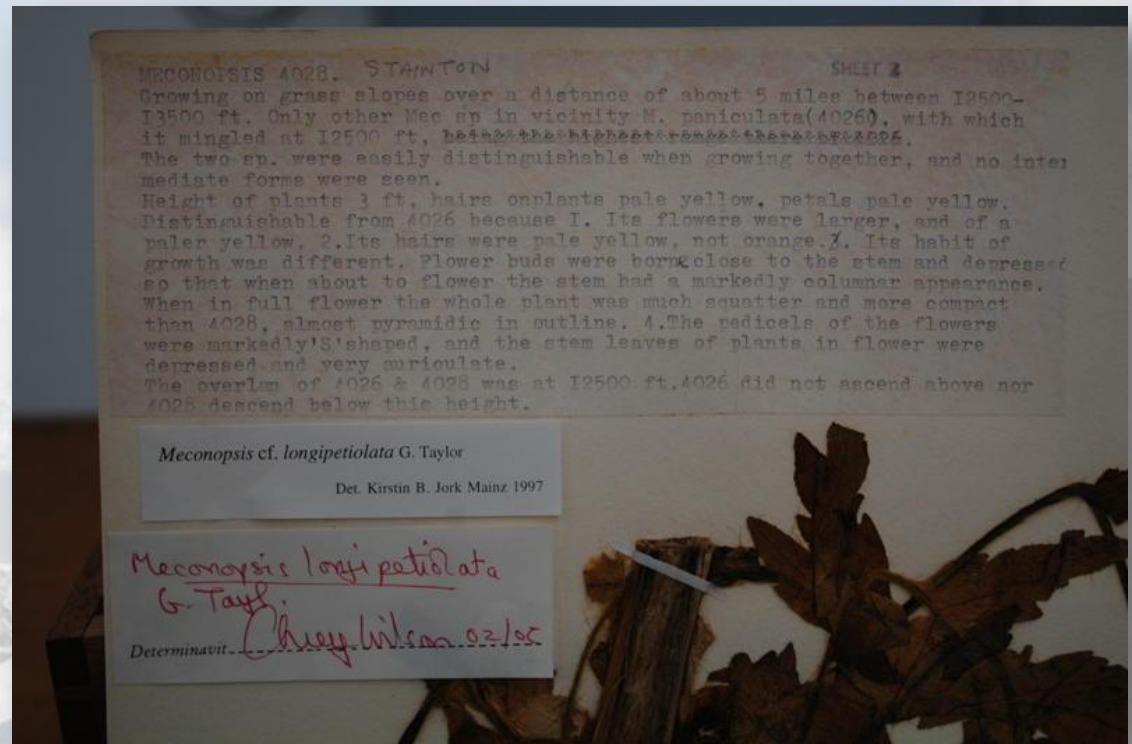 MECONOPSIS 4028. STAINTON SHEET 2
Growing on grass slopes over a distance of about 5 miles between I2500-
I3500 ft. Only other Mec sp in vicinity M. paniculata(4026), with which
it mingled at I2500 ft,
The two sp. were easily distinguishable when growing together, and no inter
mediate forms were seen.
Height of plants 3 ft, hairs onplants pale yellow, petals pale yellow.
Distinguishable from 4026 because I. Its flowers were larger, and of a
paler yellow. 2.Its hairs were pale yellow, not orange.3. Its habit of
growth was different. Flower buds were borne close to the stem and depressed
so that when about to flower the stem had a markedly columnar appearance.
When in full flower the whole plant was much squatter and more compact
than 4028, almost pyramidic in outline. 4.The pedicels of the flowers
were markedly'S'shaped, and the stem leaves of plants in flower were
depressed and very auriculate.
The overlap of 4026 & 4028 was at I2500 ft.4026 did not ascend above nor
4028 descend below this height.
Meconopsis cf. longipetiolata G. Taylor
Det. Kirstin B. Jork Mainz 1997
Meconopsis longipetiolata
G. Tayl.
Determinavit Grey Wilson 02/